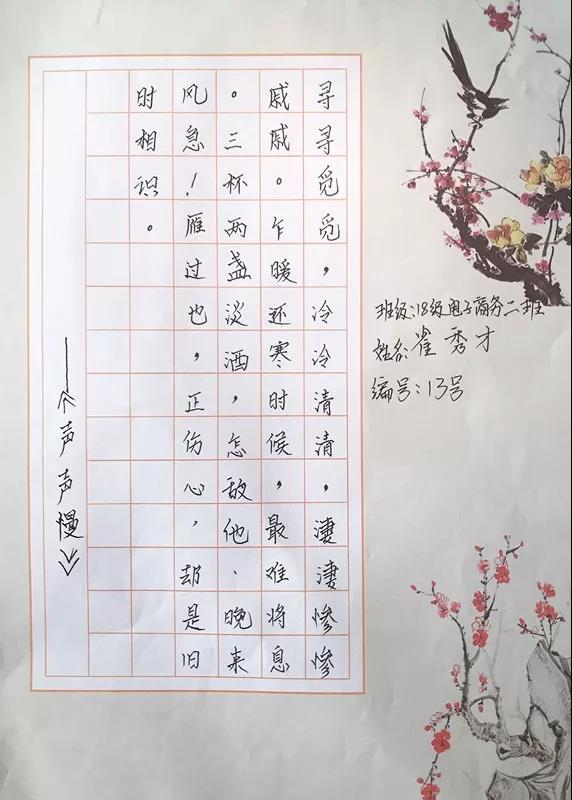 寻寻觅觅，冷冷清清，淒淒惨惨
戚戚。乍暖还寒时候，最难将息
。三杯两盏淡酒，怎敌他、晚来
风急！雁过也，正伤心，却是旧
时相识。
——《声声慢》
班级:18级电子商务二班
姓名:雀秀才
编号:13号